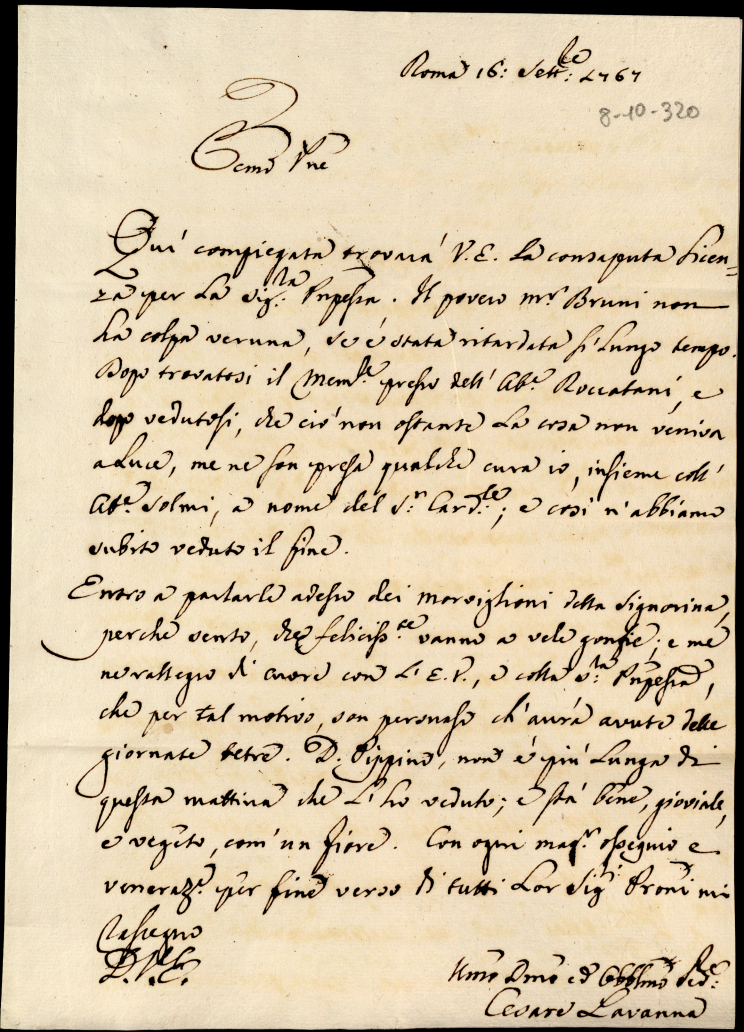 Roma 16: Sett:le 1767
8-10-320
Ecmo Pne
Quì compiegata trovarà V.E. la consaputa licen=
za per la Sig:ra Pnpessa. Il povero Mr. Bruni non
ha colpa veruna, se è stata ritardata sì lungo tempo.
Dopo trovatosi il Mem:le presso dell' Abe. Roccatani, e
dopo vedutosi, che ciò non ostante la cosa non veniva
a luce, me ne son presa qualche cura io, insieme coll'
Abe. Solmi, a nome del Sr. Card:le; e così n'abbiamo
subito veduto il fine.
Entro a parlarle adesso dei morviglioni della Signorina,
perchè sento, che feliciss:te vanno a vele gonfie; e me
ne rallegro di cuore con l'E.V., e colla S:ra Pnpessa,
che per tal motivo, son persuaso ch'aurà avute delle
giornate tetre. D. Pippino, non è più lunga di
questa mattina che l'ho veduto; e stà bene, gioviale,
e vegeto, com' un fiore. Con ogni magr. ossequio e
veneraze. per fine verso di tutti Lor Sigri Proni mi
rassegno
D.V.E.
Umo Dmo ed Obblmo Sed:re
Cesare Lavanna